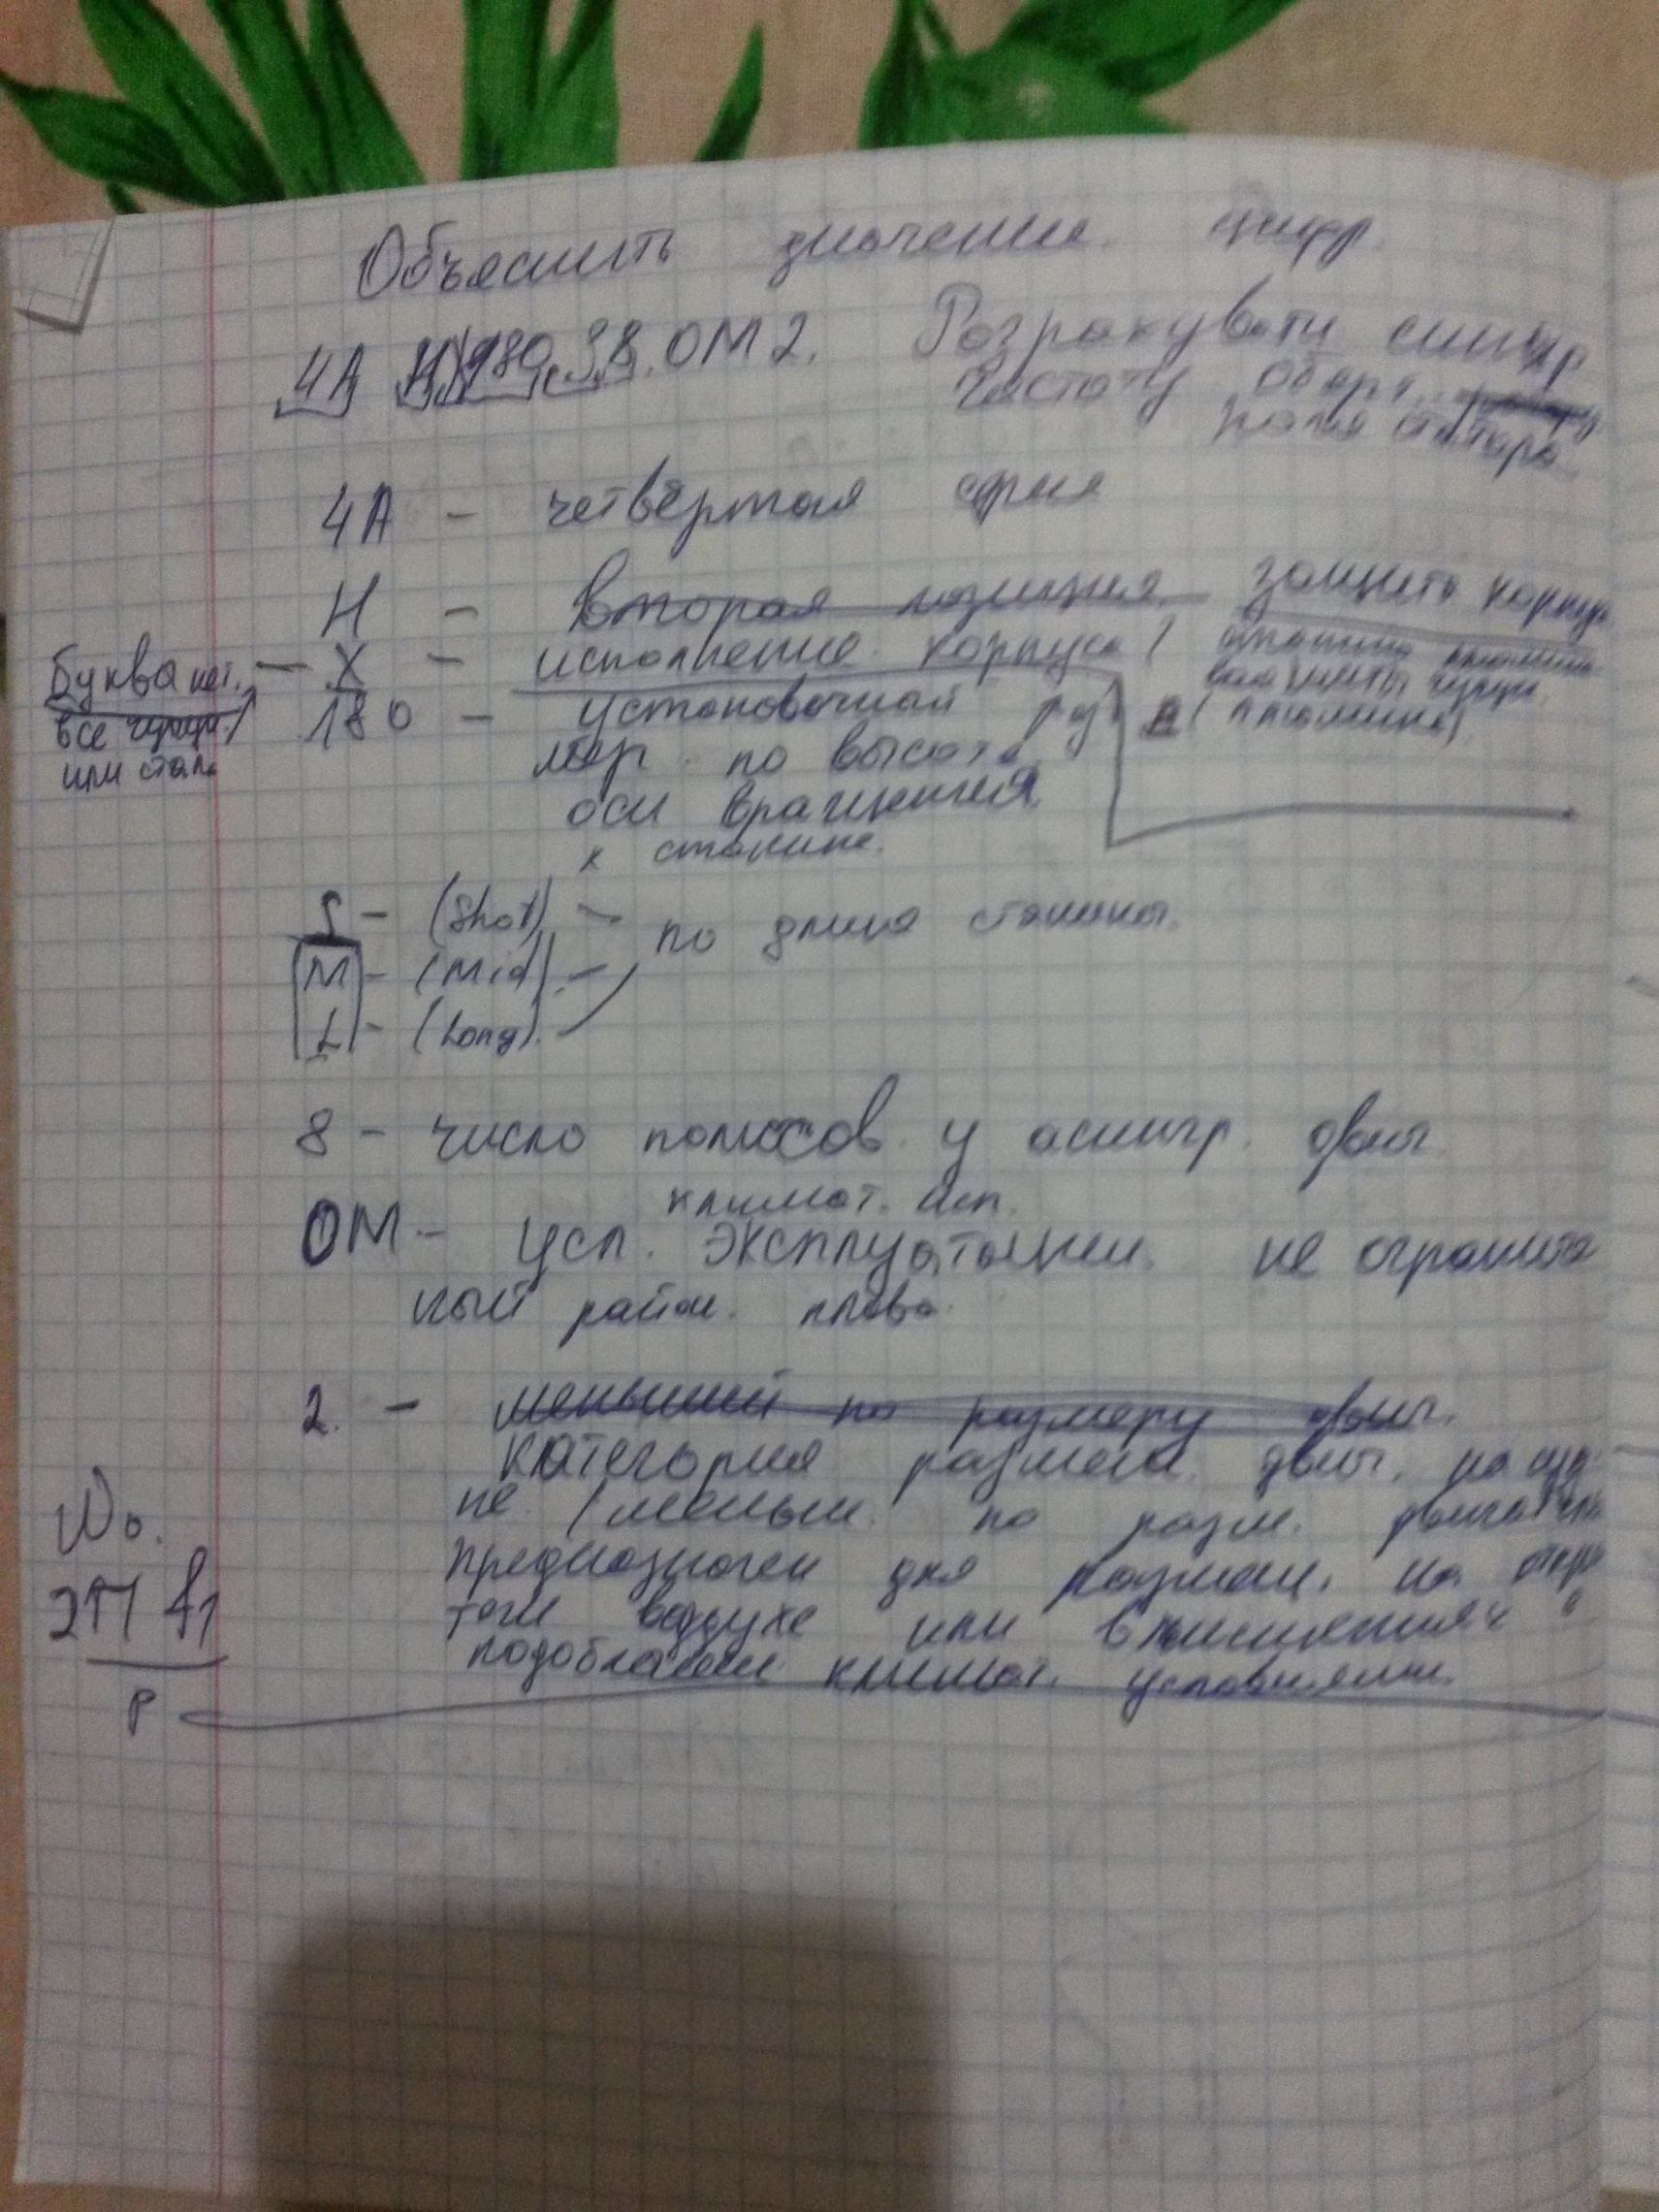 Объяснить значение цифр.
4А НХ180 S8 ОМ2. Розрахувати синхр
частоту оберт.
поля статора
4А - четвёртая серия
Н - вторая позиция защита корпуса
Буква нет. - Х - исполнение корпуса (станина алюмин.
все чугун. или стал.
180 - установочный раз
мер по высоте
оси вращения
к станине.
щиты чугун.
(алюмина)
S - (Shot) - по длине станины.
M - (Mid). -
L - (Long).
8 - число полюсов у асинхр. двиг.
климат. исп.
ОМ - усл. эксплуатации. не ограниче
ный район. плава.
2. - меньший по размеру двиг.
категория размещ. двиг. на суд
не (меньш. по разм. двигатель
предназначен для размещ. на откр
том воздухе или в помещениях с
подобными климат. условиями.
Wo.
2П f1
P